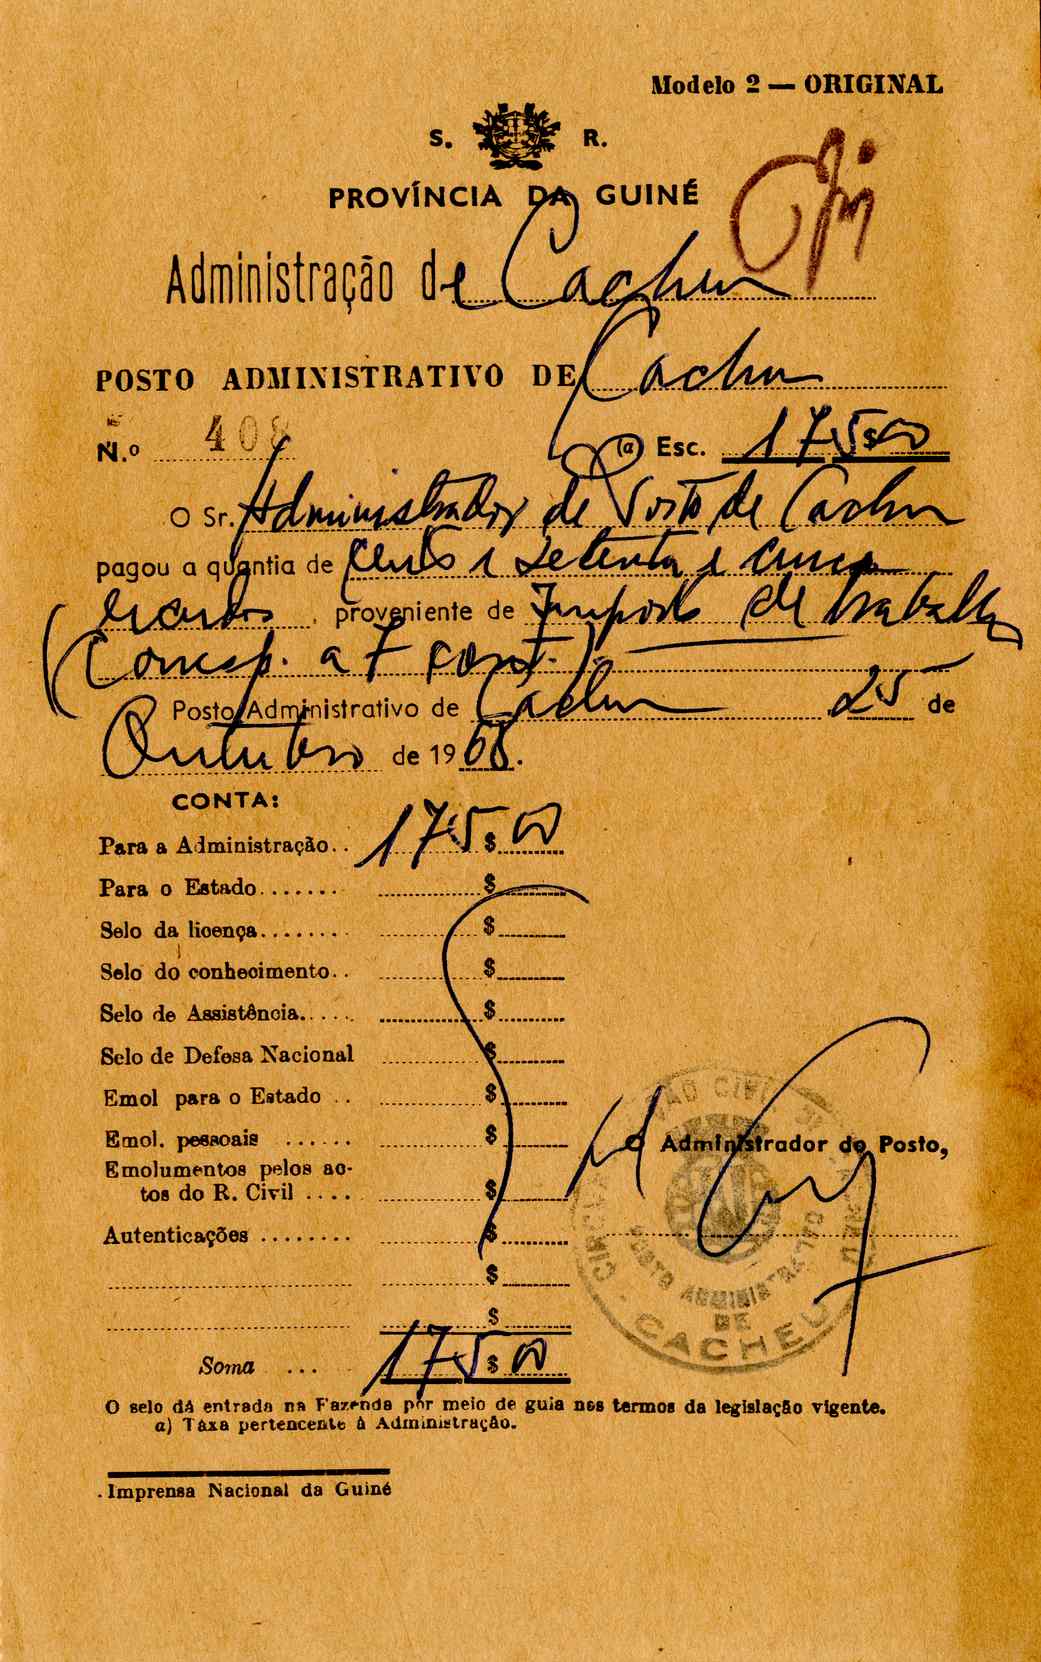 Modelo 2 — ORIGINAL
S. R.
PROVÍNCIA DA GUINÉ
Administração de Cacheu
POSTO ADMINISTRATIVO DE Cacheu
N.º 408 (a) Esc. 175$00
O Sr. Administrador de Posto de Cacheu
pagou a quantia de cento e setenta e cinco
escudos, proveniente de Imposto de trabalho
(Corresp. a 7 cont.).
Posto Administrativo de Cacheu 25 de
Outubro de 1968.
CONTA:
Para a Administração.. 175$00
Para o Estado....... $
Selo da licença........ $
Selo do conhecimento.. $
Selo de Assistência..... $
Selo de Defesa Nacional $
Emol para o Estado .. $
Emol. pessoais ...... $
Emolumentos pelos ac-
tos do R. Civil .... $
Autenticações ........ $
$
$
Soma ... 175$00
O Administrador do Posto,
POSTO ADMINISTRATIVO
DE
CACHEU
O selo dá entrada na Fazenda por meio de guia nos termos da legislação vigente.
a) Taxa pertencente à Administração.
Imprensa Nacional da Guiné